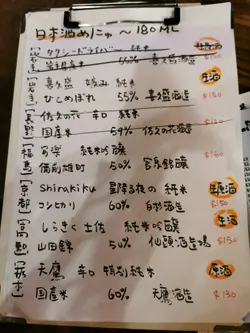 日本酒めにゅ〜 180ML
タクシードライバー 純米
岩手県産米 喜久盛酒造
[岩手] 喜久盛 純米 生酒
ひとめぼれ 55% 喜久盛酒造 $150
[長野] 佐久の花 辛口 純米
国産米 59% 佐久の花酒造
[福島] 純米吟醸 $160
備前雄町 50%
[京都] Shirakiku 純米 生原酒
コシヒカリ 60% 白杉酒造 $150
[高知] しらぎく 土佐 純米吟醸 生酒
山田錦 50% 仙頭酒造場 $150
[栃木] 天鷹 辛口 特別純米 原酒
国産米 60% 天鷹酒造 $130